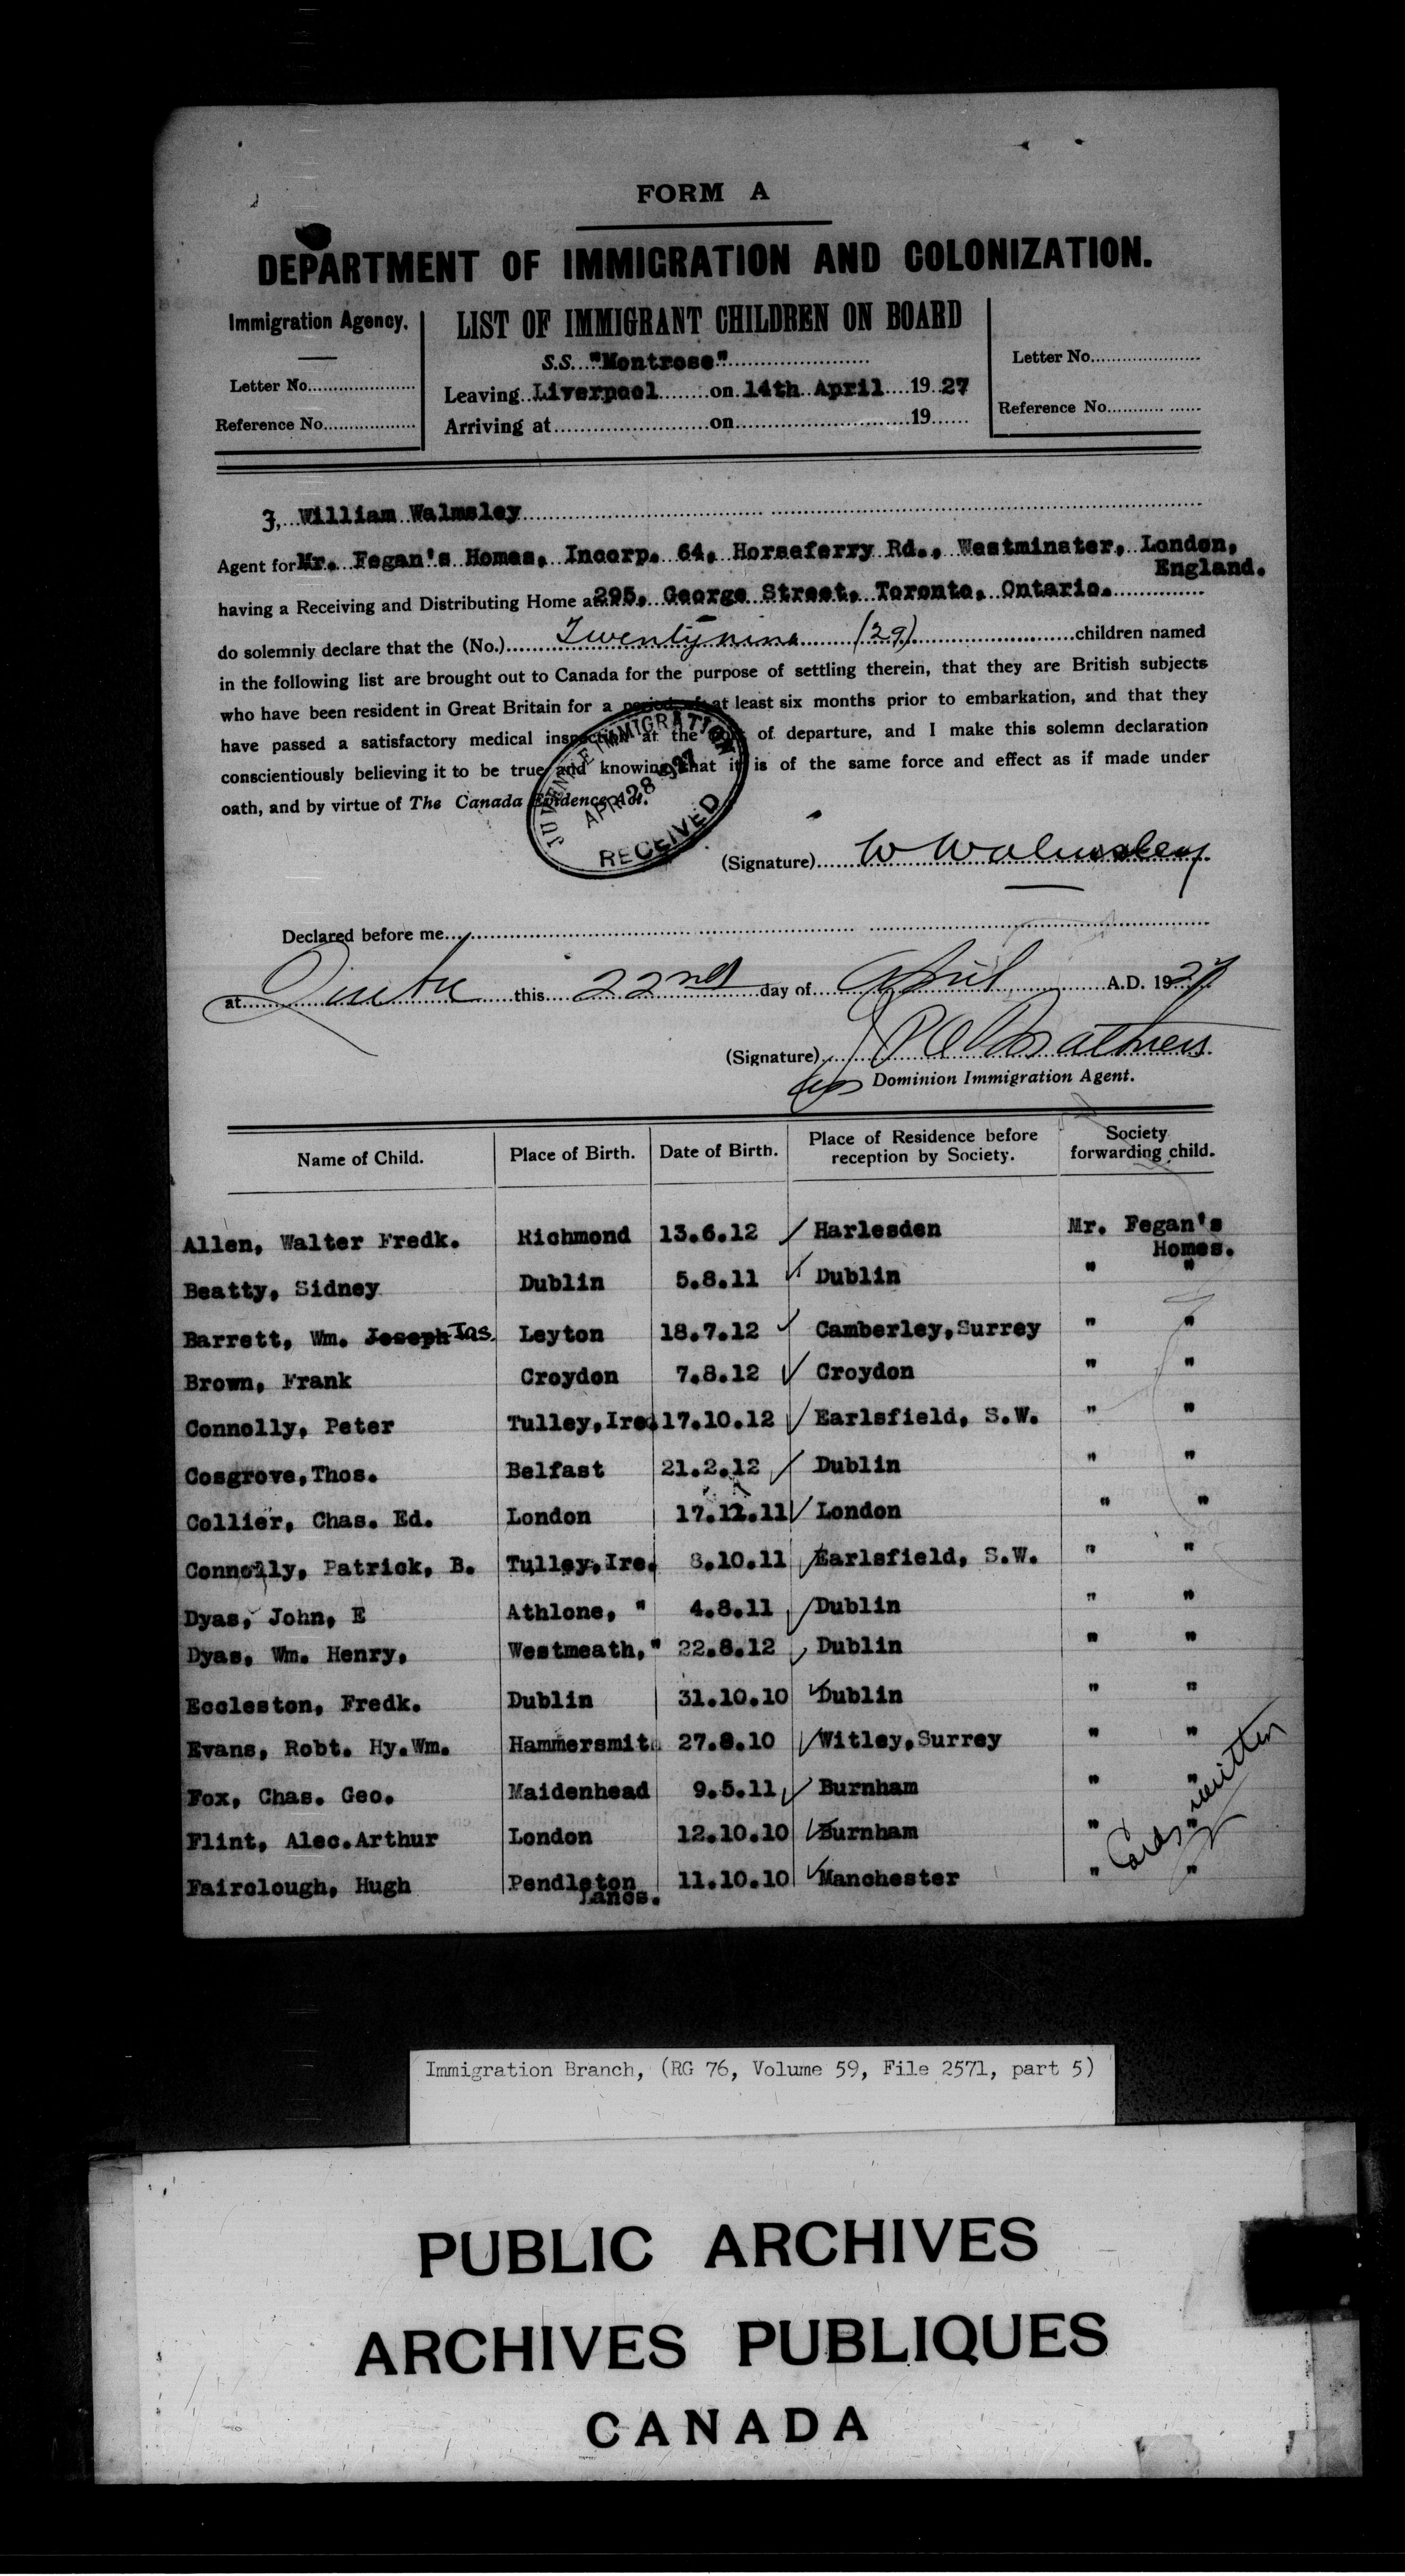 FORM A
DEPARTMENT OF IMMIGRATION AND COLONIZATION.
Immigration Agency.
Letter No....................
Reference No..................
LIST OF IMMIGRANT CHILDREN ON BOARD
S.S. "Montrose"
Leaving Liverpool on 14th April 19 27
Arriving at........................on..............................19......
Letter No.....................
Reference No...................
I, William Walmsley
Agent for Mr. Fegan's Homes, Incorp. 64, Horseferry Rd., Westminster, London,
England.
having a Receiving and Distributing Home at 295, George Street, Toronto, Ontario.
do solemnly declare that the (No.) Twentynine (29) children named
in the following list are brought out to Canada for the purpose of settling therein, that they are British subjects
who have been resident in Great Britain for a period of at least six months prior to embarkation, and that they
have passed a satisfactory medical inspection at the port of departure, and I make this solemn declaration
conscientiously believing it to be true and knowing that it is of the same force and effect as if made under
oath, and by virtue of The Canada Evidence Act.
JUVENILE IMMIGRATION
APR 28 1927
RECEIVED
(Signature) W Walmsley
Declared before me
at this 22nd day of April A.D. 1927
(Signature)
Dominion Immigration Agent.
Name of Child. Place of Birth. Date of Birth. Place of Residence before reception by Society. Society forwarding child.
Allen, Walter Fredk. Richmond 13.6.12 ✓ Harlesden Mr. Fegan's
Homes.
Beatty, Sidney Dublin 5.8.11 ✓ Dublin " "
Barrett, Wm. Joseph Jas. Leyton 18.7.12 ✓ Camberley, Surrey " "
Brown, Frank Croydon 7.8.12 ✓ Croydon " "
Connolly, Peter Tulley, Ire. 17.10.12 ✓ Earlsfield, S.W. " "
Cosgrove, Thos. Belfast 21.2.12 ✓ Dublin " "
Collier, Chas. Ed. London 17.12.11 ✓ London " "
Connolly, Patrick, B. Tulley, Ire. 8.10.11 ✓ Earlsfield, S.W. " "
Dyas, John, E Athlone, " 4.8.11 ✓ Dublin " "
Dyas, Wm. Henry, Westmeath, " 22.8.12 ✓ Dublin " "
Eccleston, Fredk. Dublin 31.10.10 ✓ Dublin " "
Evans, Robt. Hy. Wm. Hammersmit 27.8.10 ✓ Witley, Surrey " "
Fox, Chas. Geo. Maidenhead 9.5.11 ✓ Burnham " "
Flint, Alec. Arthur London 12.10.10 ✓ Burnham " "
Fairclough, Hugh Pendleton 11.10.10 ✓ Manchester " "
Lancs.
Cards written
Immigration Branch, (RG 76, Volume 59, File 2571, part 5)
PUBLIC ARCHIVES
ARCHIVES PUBLIQUES
CANADA